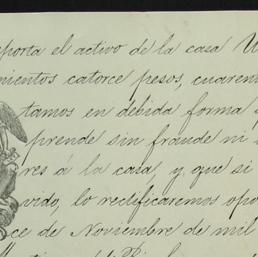 porta el activo de la casa
mientos catorce pesos, cuaren
tamos en debida forma
prende sin fraude ni
res á la casa, y que si
vido, lo rectificaremos opo
ce de Noviembre de mil